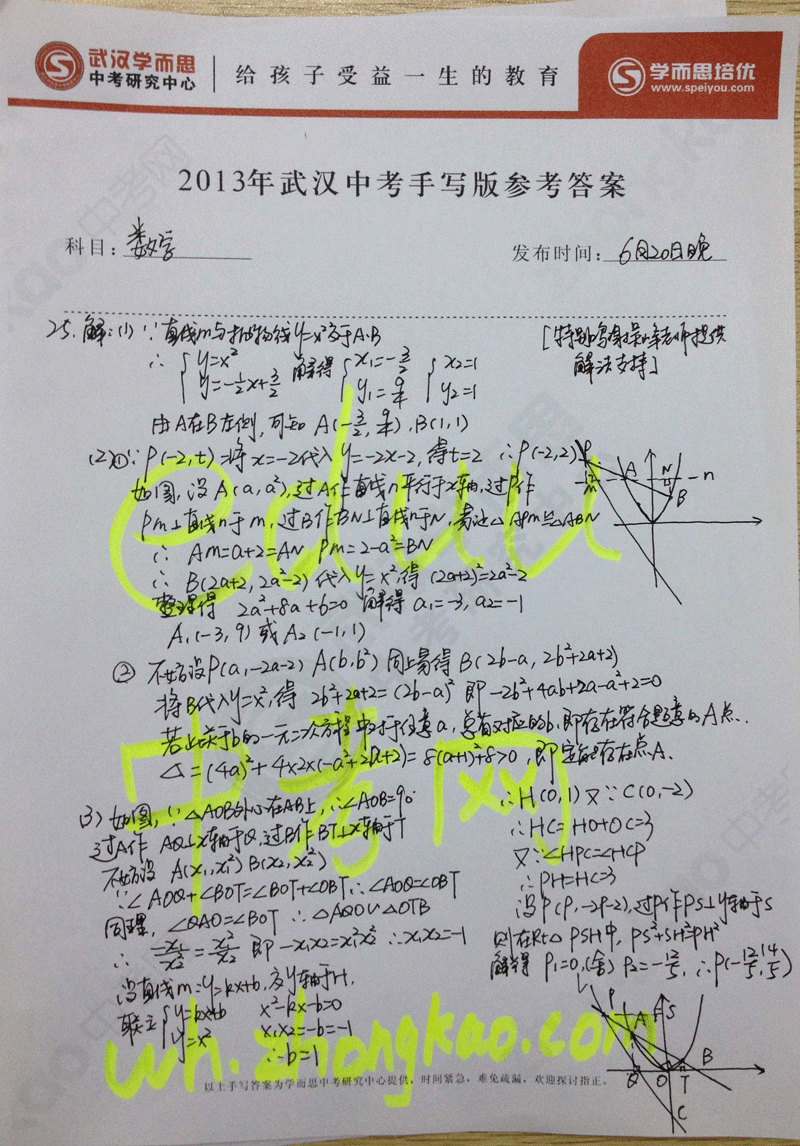 武汉学而思
中考研究中心
给孩子受益一生的教育
学而思培优
www.speiyou.com
2013年武汉中考手写版参考答案
科目：数学
发布时间：6月20日晚
25.解:(1)∵直线m与抛物线y=x²交于A、B
[特别鸣谢吴老师提供
解法支持]
∴ {y=x² y=-1/2x+3/2 解得 {x₁=-3/2 y₁=9/4 {x₂=1 y₂=1
由A在B左侧,可知 A(-3/2, 9/4), B(1,1)
(2)①∵P(-2,t) ∴将x=-2代入y=-2x-2,得t=2 ∴P(-2,2)
如图,设A(a,a²),过A作直线n平行于x轴,过P作
PM⊥直线n于M,过B作BN⊥直线n于N,易证△APM≌△ABN
∴ AM=a+2=AN PM=2-a²=BN
∴ B(2a+2, 2a²-2) 代入y=x²,得 (2a+2)²=2a²-2
整理得 2a²+8a+6=0 解得 a₁=-3, a₂=-1
A₁(-3,9) 或 A₂(-1,1)
② 不妨设P(a,-2a-2) A(b,b²) 同上易得 B(2b-a, 2b²+2a+2)
将B代入y=x²,得 2b²+2a+2=(2b-a)² 即 -2b²+4ab+2a-a²+2=0
若此关于b的一元二次方程中对于任意a,总有对应的b,即存在符合题意的A点.
△=(4a)²+4×2×(-a²+2a+2)=8(a+1)²+8>0,即定能存在点A.
(3)如图,∵△AOB外心在AB上,∴∠AOB=90°
过A作 AQ⊥x轴于Q,过B作BT⊥x轴于T
不妨设 A(x₁,x₁²) B(x₂,x₂²)
∵∠AOQ+∠BOT=∠BOT+∠OBT ∴∠AOQ=∠OBT
同理,∠QAO=∠BOT ∴△AQO∽△OTB
∴ -x₁/x₂²=x₁²/x₂ 即 -x₁x₂=x₁²x₂² ∴x₁x₂=-1
设直线m:y=kx+b,交y轴于H,
联立{y=kx+b y=x² x²-kx-b=0
x₁x₂=-b=-1
∴b=1
∴H(0,1) 又∵C(0,-2)
∴HC=HO+OC=3
又∵∠HPC=∠HCP
∴PH=HC=3
设P(P,-2P-2),过P作PS⊥y轴于S
则在Rt△PSH中, PS²+SH²=PH²
解得 P₁=0,(舍) P₂=-12/5, ∴P(-12/5,14/5)
P
A
M
N
n
B
P
A
S
B
Q
O
T
C
eduu
中考网
wh.zhongkao.com
以上手写答案为学而思中考研究中心提供，时间紧急，难免疏漏，欢迎探讨指正。